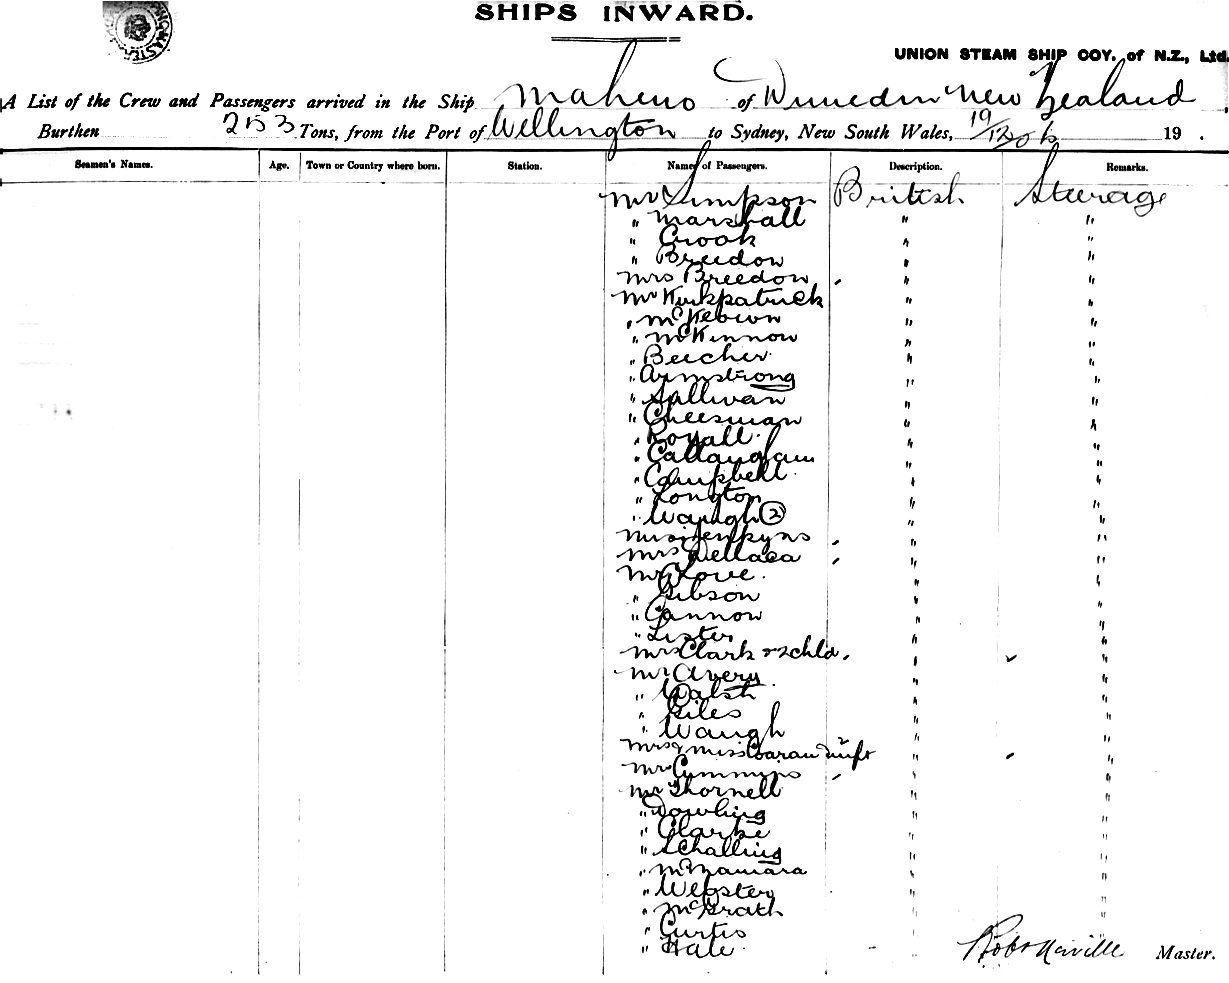 SHIPS INWARD.
UNION STEAM SHIP COY. of N.Z., Ltd.
A List of the Crew and Passengers arrived in the Ship Maheno of Dunedin New Zealand
Burthen Tons, from the Port of Wellington to Sydney, New South Wales, 19/12 06 19 .
Seamen's Names. Age. Town or Country where born. Station. Names of Passengers. Description. Remarks.
Mr Simpson British Steerage
" Marshall " "
" Crook " "
" Breedon " "
Mrs Breedon " "
Mr Kirkpatrick " "
" McKeown " "
" McKinnon " "
" Beecher " "
" Armstrong " "
" Sullivan " "
" Cheesman " "
" Royall " "
" Callaughan " "
" Campbell " "
" Longton " "
" Waugh (2) " "
Miss Jenkyns " "
Mrs Dellaca " "
Mr Love " "
" Gibson " "
" Cannon " "
" Lister " "
Mrs Clark & 2 chld " "
Mr Avery " "
" Walsh " "
" Giles " "
" Waugh " "
Mrs & Miss " "
Mr Cummins " "
Mr Thornell " "
" Dowling " "
" Clarke " "
" Schalling " "
" McNamara " "
" Webster " "
" McGrath " "
" Curtis "
" Hale Robt Neville Master.